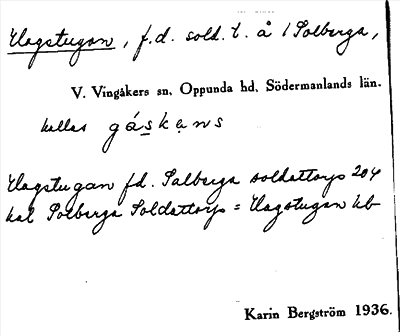 Hagstugan, f.d. sold. t. å /Solberga,
V. Vingåkers sn, Oppunda hd, Södermanlands län.
kallas gåskens
Hagstugan fd. Solberga soldattorp 204
kal Solberga Soldattorp = Hagstugan kb
Karin Bergström 1936.